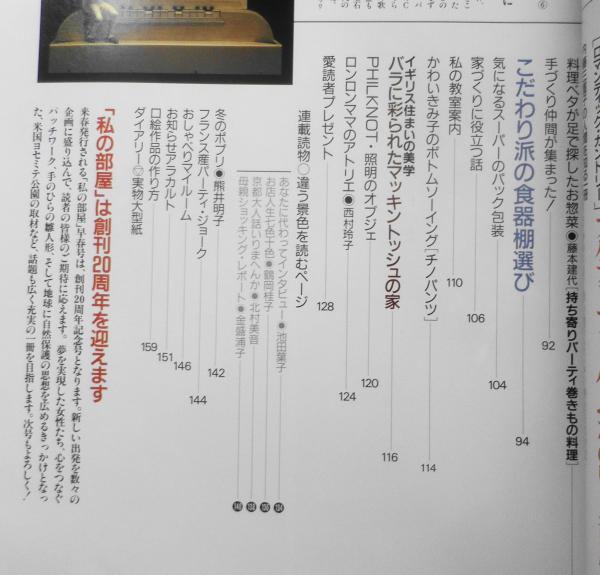 料理ベタが足で探したお惣菜●藤本建代[持ち寄りパーティ巻きもの料理]
手づくり仲間が集まった！ 92
こだわり派の食器棚選び 94
気になるスーパーのパック包装 104
家づくりに役立つ話 106
私の教室案内 110
かわいきみ子のボトムソーイング[チノパンツ] 114
イギリス住まいの美学
バラに彩られたマッキントッシュの家 116
PHILKNOT・照明のオブジェ 120
ロンロンママのアトリエ●西村玲子 124
愛読者プレゼント 128
連載読物○違う景色を読むページ
あなたに代わってインタビュー●池田葉子
お店人生七色十色●鶴岡桂子
京都大人話いりまへんか●北村美音
母親ショッキング・レポート●金盛浦子
冬のポプリ●熊井明子 142
フランス産パーティ・ジョーク 144
おしゃべりマイルーム 146
お知らせアラカルト 151
口絵作品の作り方 159
ダイアリー♡実物大型紙
「私の部屋」は創刊20周年を迎えます
来春発行される「私の部屋」早春号は、創刊20周年記念号となります。新しい出発を数々の
企画に盛り込んで、読者の皆様のご期待に応えます。夢を実現した女性たち、心をつなぐ
パッチワーク、手のひらの雛人形、そして地球に自然保護の思想を広めるきっかけとなっ
た、米国ヨセミテ公園の取材など、話題も広く充実の一冊を目指します。次号もよろしく！